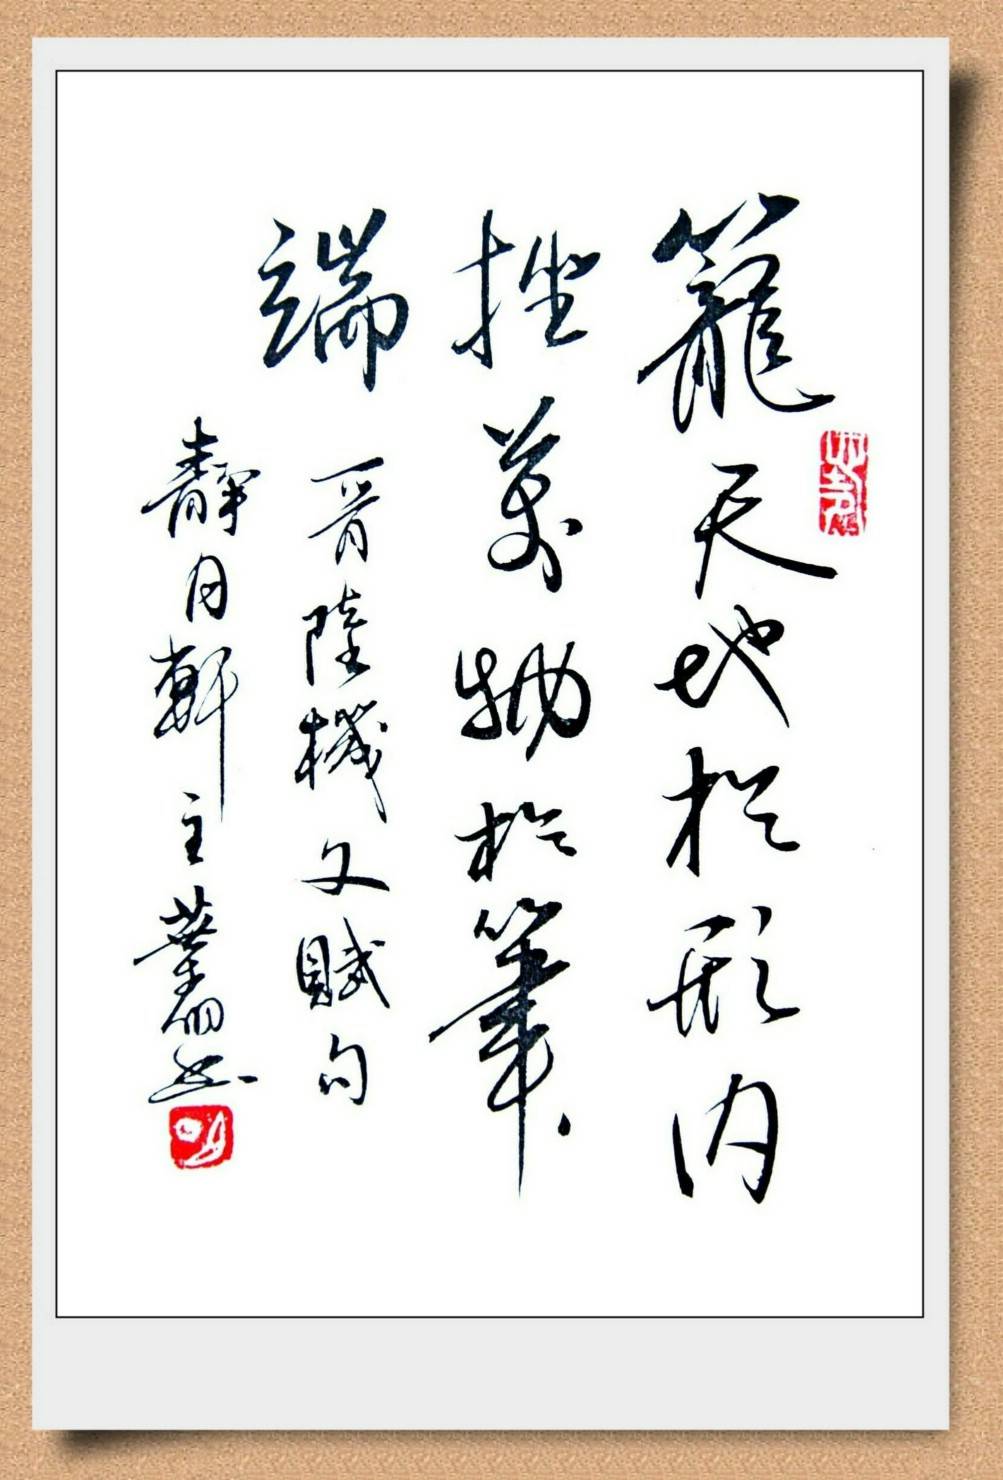 籠天地於形内
挫萬物於筆
端
晉陸機文賦句
靜月軒主葉明書